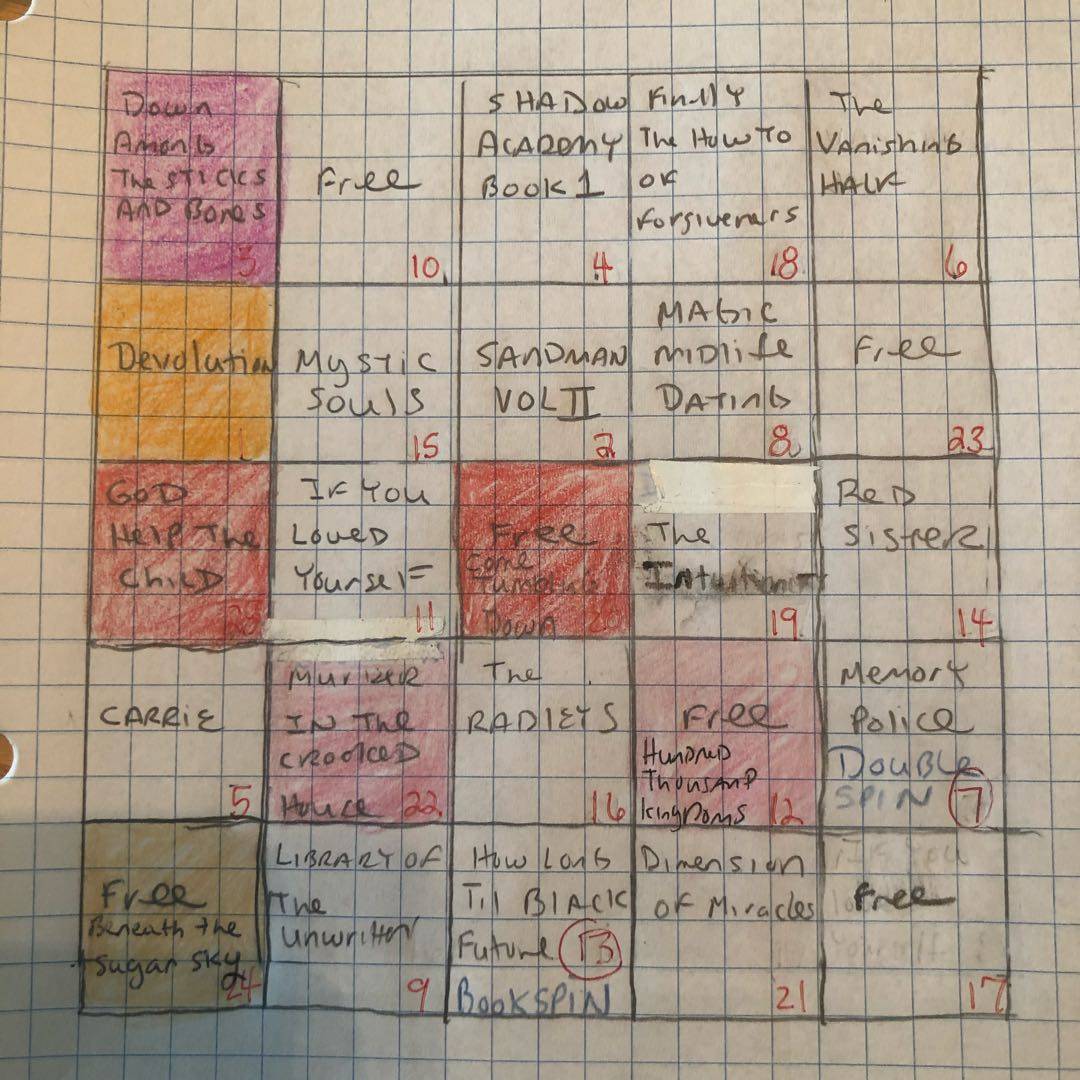 Down
Among
The Sticks
And Bones
3
Free
10
SHADOW
ACADEMY
BOOK 1
4
Finlly
The How To
OF
Forgiveners
18
The
VANishing
HALF
6
Devolution
1
MYSTIC
SOULS
15
SANDMAN
VOL II
2
MAGIC
MIDLIFE
DATING
8
Free
23
GOD
HELP The
CHILD
IF YOU
LOVED
YourseLF
11
Free
Come
Tumbling
Down
The
Intuitionist
19
RED
SISTER
14
CARRIE
5
MURDER
IN THE
CROOKED
House 22
The
RADLEYS
16
Free
HUNDRED
THOUSAND
KINGDOMS 12
Memory
Police
DOUBLE
SPIN 7
Free
Beneath the
Sugar Sky
24
LIBRARY OF
The
Unwritten
9
How Long
Til BLACK
Future 13
BOOKSPIN
Dimension
OF Miracles
21
Free
17